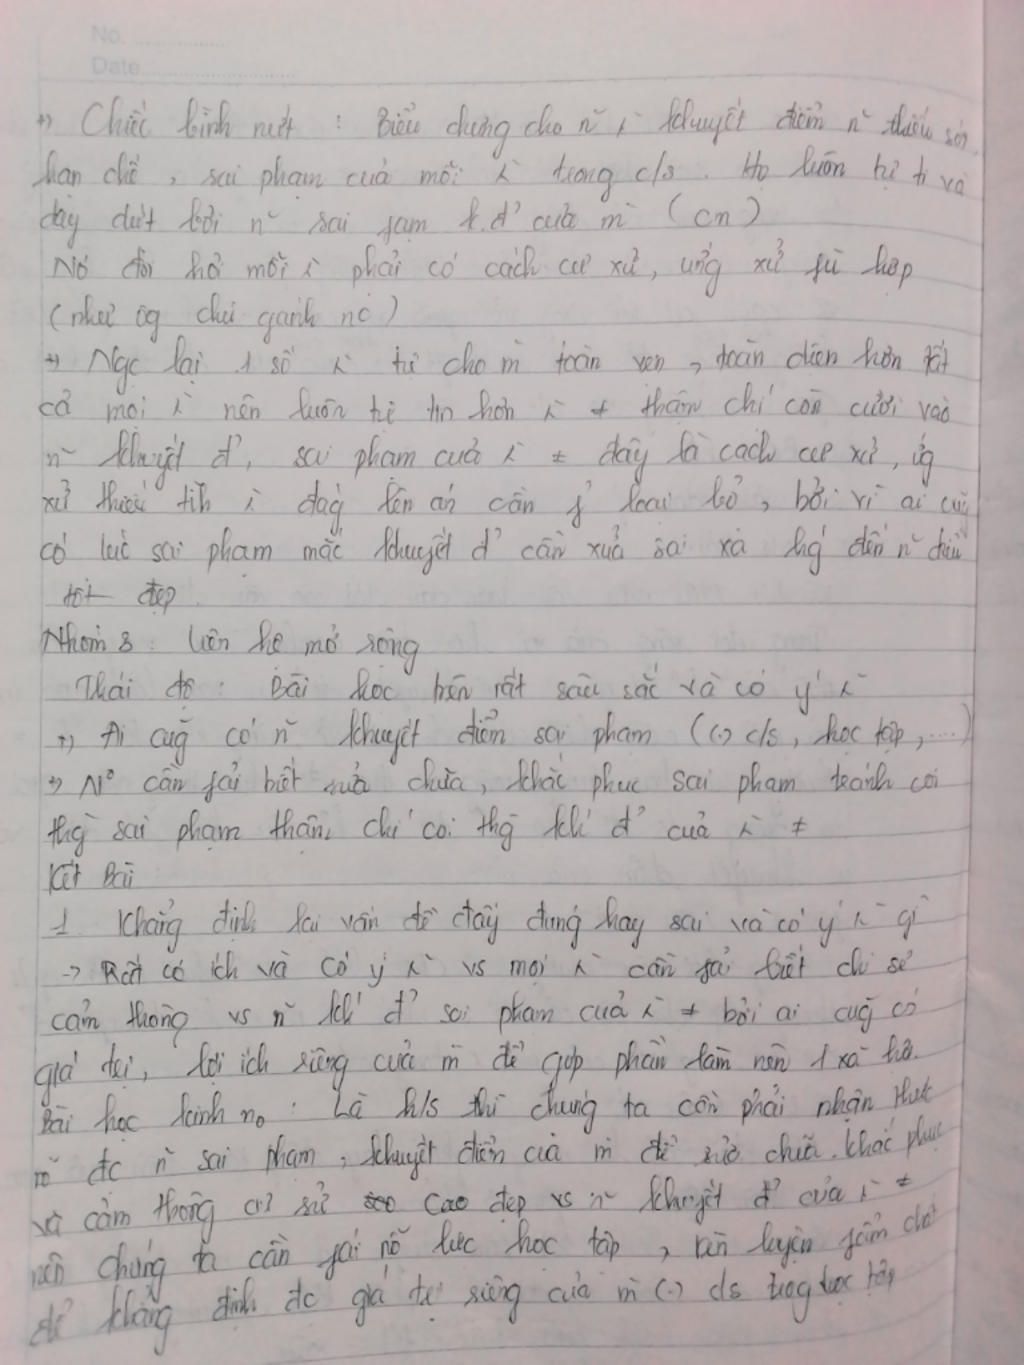 No. ..............
Date..........................
+) Chiếc bình nứt : Biểu chưng cho n~ ng` khuyết điểm n~ thiếu sót
hạn chế , sai phạm của mỗi ng` trong c/s . Họ luôn tự ti và
dày dứt bởi n~ sai fạm k.đ' của m` ( cn )
Nó đòi hỏi mỗi ng` phải có cách cư xử, ứng xử fù hợp
( như ôg chủ gánh nc )
+) Ngc lại 1 số ng` tự cho m` toàn vẹn , toàn diện hơn tất
cả mọi ng` nên luôn tự tin hơn ng` ≠ thậm chí còn cười vào
n~ khuyết đ', sai phạm của ng` ≠ đây là cách cư xử, ứg
xử thiếu tih ng` đág lên án cần loại bỏ , bởi vì ai cũg
có lúc sai phạm mắc khuyết đ' cần xửa sai và hg' đến n~ điều
tốt đẹp
Nhóm 3 : Liên hệ mở rộng
Thái độ : Bài học trên rất sâu sắc và có ý n~
+) Ai cũg có n~ khuyết điểm sai phạm ( (.) c/s, học tập, ....)
+) Nó cần fải biết sửa chữa, khắc phục sai phạm tránh coi
thg` sai phạm thậm chí coi thg` kh' đ' của ng` ≠
Kết Bài
1 Khẳng định lại vấn đề đấy đúng hay sai và có ý n~ gì
-> Rất có ích và có ý n~ vs mọi ng` cần fải biết chia sẻ
cảm thông vs n~ kh' đ' sai phạm của ng` ≠ bởi ai cũg có
giá trị, lợi ích riêng của m` để góp phần làm nên 1 xã hội.
Bài học kinh no : Là h/s thì chúng ta cần phải nhận thức
rõ đc n~ sai phạm, khuyết điểm của m` để sửa chữa. khắc phục
và cảm thông cư sử cao đẹp vs n~ khuyết đ' của ng` ≠
nên chúng ta cần fải nỗ lực học tập , rèn luyện fẩm chất
để khẳng định đc giá trị riêng của m` (.) c/s trog học tập